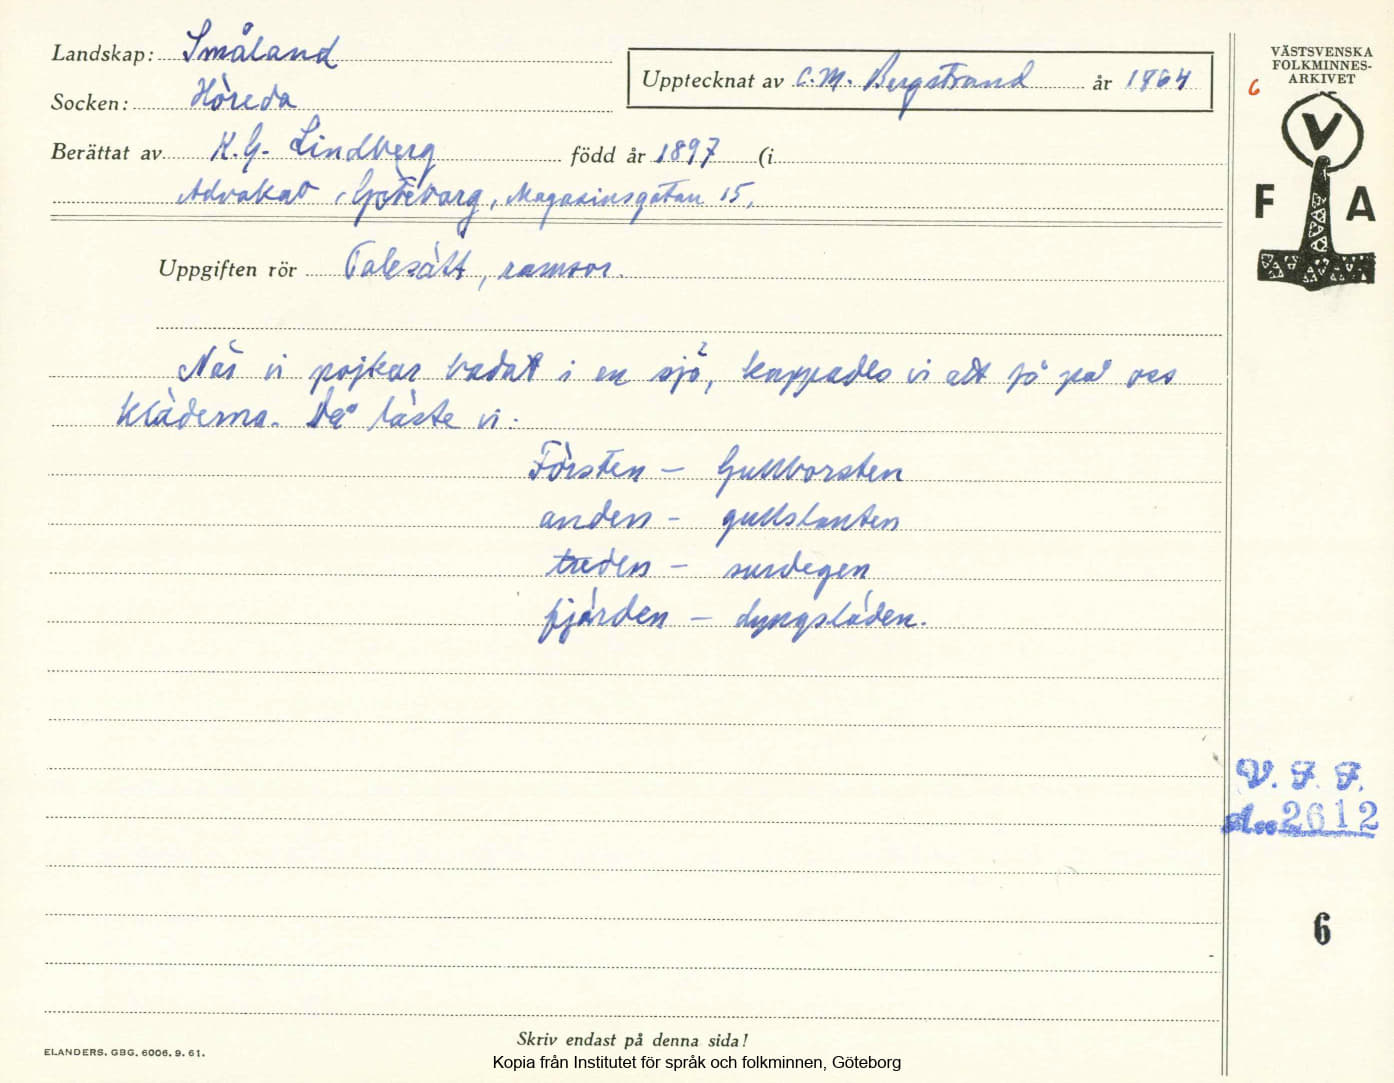 Landskap: Småland
Socken: Höreda
Upptecknat av C.M. Bergstrand år 1964
Berättat av K.G. Lindberg född år 1897 (i
Advokat i Göteborg, Magasinsgatan 15.
Uppgiften rör Talesätt, ramsor.
När vi pojkar badat i en sjö, kappades vi att få på oss
kläderna. Då läste vi:
Försten – Gullborsten
anden – gullslanten
treden – surdegen
fjärden – dyngsläden.
VÄSTSVENSKA
FOLKMINNES-
ARKIVET
6
V
F A
V. F. F.
Acc 2612
6
Skriv endast på denna sida!
ELANDERS. GBG. 6006. 9. 61.
Kopia från Institutet för språk och folkminnen, Göteborg